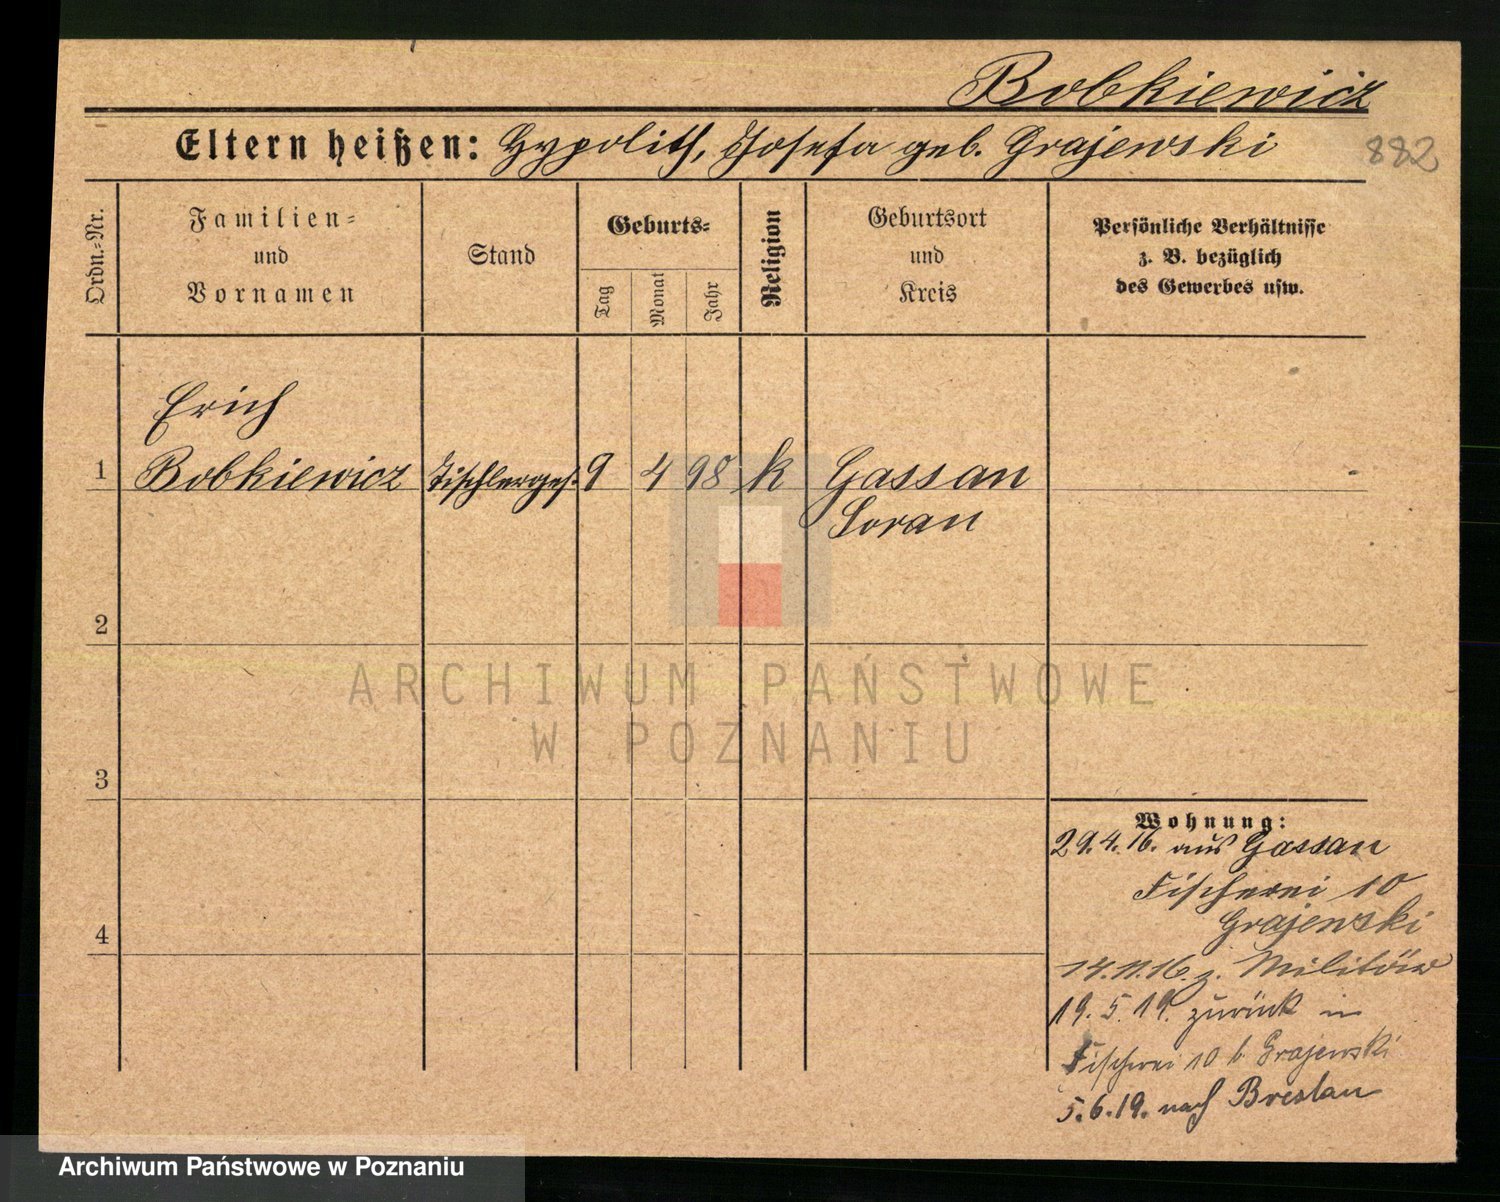 Bobkiewicz
Eltern heißen: Hypolith, Josefa geb. Grajewski
882
Ordn.-Nr.
Familien-
und
Vornamen
Stand
Geburts-
Tag
Monat
Jahr
Religion
Geburtsort
und
Kreis
Persönliche Verhältnisse
z. B. bezüglich
des Gewerbes usw.
Erich
1 Bobkiewicz Tischlerges. 9 4 98 k Gassan
Soran
2
ARCHIWUM PAŃSTWOWE
W POZNANIU
3
Wohnung:
29.4.16. aus Gassan
Fischerei 10
Grajewski
4
14.11.16. z. Militär
19.5.19. zurück in
Fischerei 10 b. Grajewski
5.6.19. nach Breslau
Archiwum Państwowe w Poznaniu